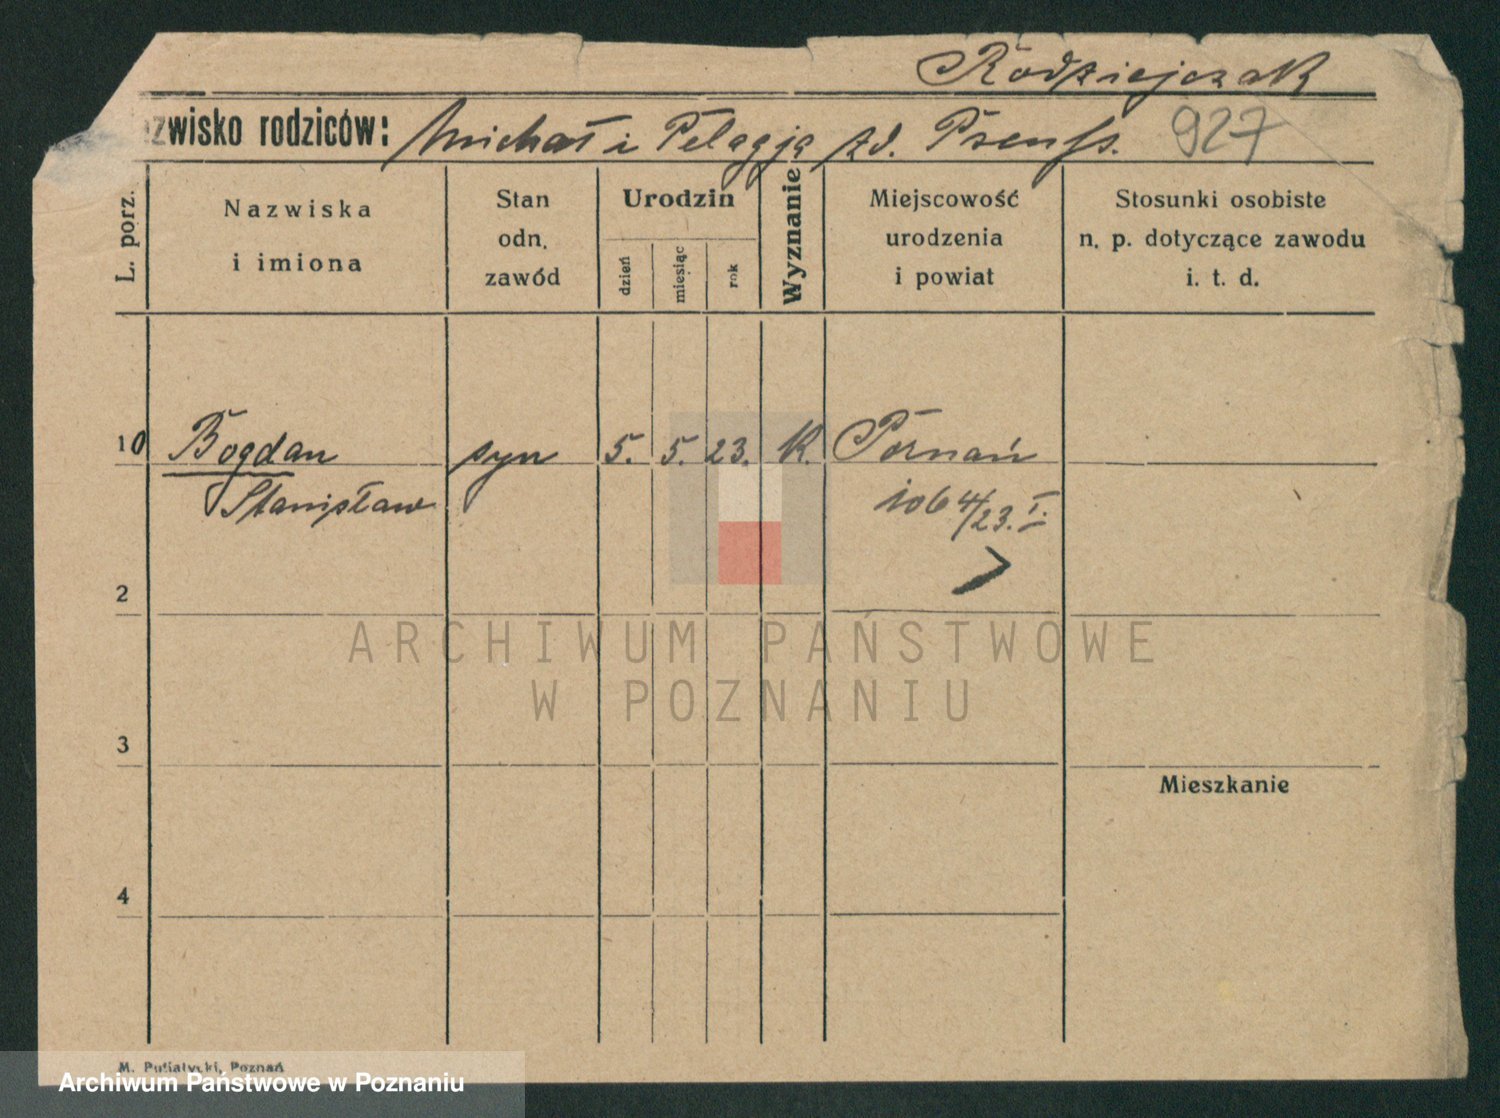 Rodziejczak
zwisko rodziców: Michał i Pelagja zd. Preuss. 927
L. porz.
Nazwiska
i imiona
Stan
odn.
zawód
Urodzin
dzień
miesiąc
rok
Wyznanie
Miejscowość
urodzenia
i powiat
Stosunki osobiste
n. p. dotyczące zawodu
i. t. d.
10 Bogdan syn 5. 5. 23. K. Poznań
Stanisław 1064/23. I.
2
ARCHIWUM PAŃSTWOWE
W POZNANIU
3
Mieszkanie
4
M. Putiatycki, Poznań
Archiwum Państwowe w Poznaniu